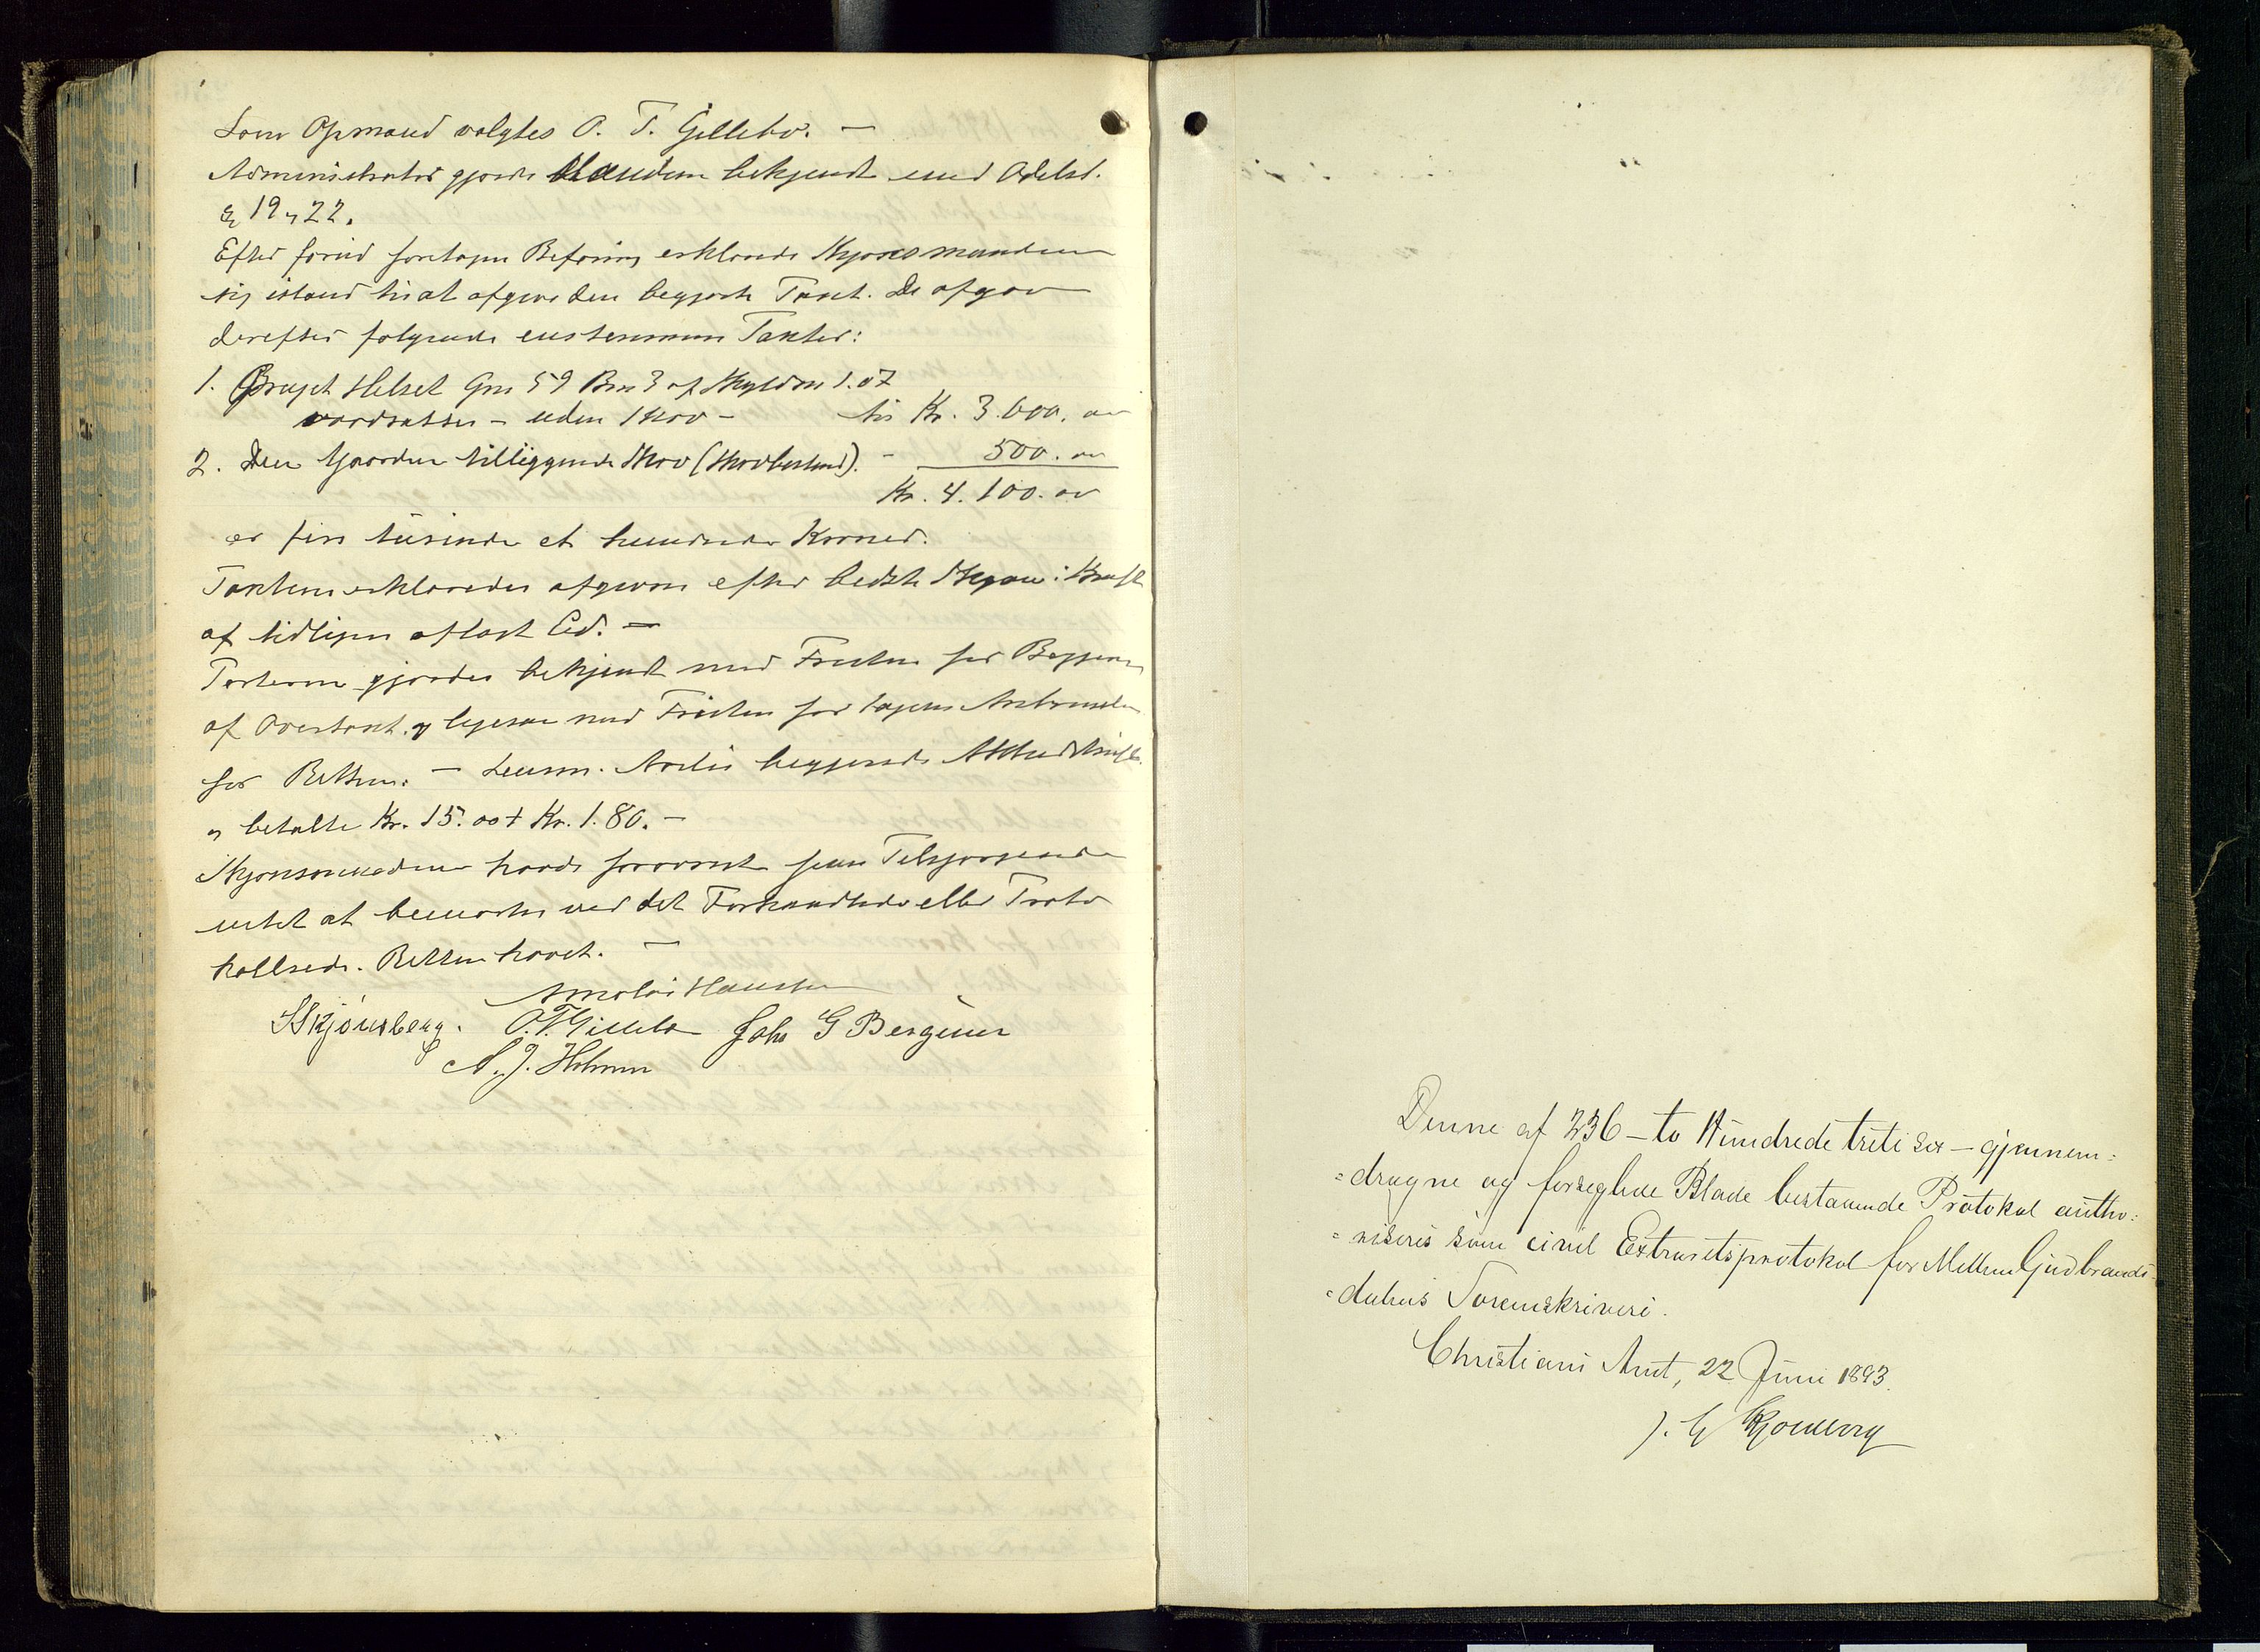 Som Opmand valgtes O. T. Gillebo. —
Administrator gjorde Mændene bekjendt med Odelsl.
§§ 19 og 22.
Efter forud foretagen Befaring erklærede Skjønsmændene
sig istand til at afgive den begjærte Taxt. De afgav
derefter følgende enstemmige Taxter:
1. Bruget Helset Gno 59 Bno 3 af Skyld M 1.07
værdsattes – uden Skov – til Kr. 3.600. 00
2. Den Gaarden tilliggende Skov (Skovbestand). - 500. 00
Kr. 4.100. 00
er fire tusinde et hundrede Kroner.
Taxterne erklæredes afgivne efter bedste Skjøn i Kraft
af tidligere aflagt Ed. —
Parterne gjordes bekjendt med Fristen for Begjæring
af Overtaxt og ligesaa med Fristen for Sagens Anbringelse
for Retten. — Lensm. begjærede Udskrift
og betalte Kr. 15.00 + Kr. 1.80. —
Skjønsmændene havde forøvrigt paa Tilspørgende
intet at bemærke ved det Forhandlede eller Proto
kollerede. Retten hævet. —
Hansen
S Skjønsberg. O. T. Gillebo Johs G Bergum
A. J.
Denne af 236 – to Hundrede treti sex – gjennem=
=dragne og forseglede Blade bestaaende Protokol autho=
=riseres som civil Extraretsprotokol for Mellem Gudbrands=
=dalens Sorenskriveri.
Christians Amt, 22 Juni 1893.